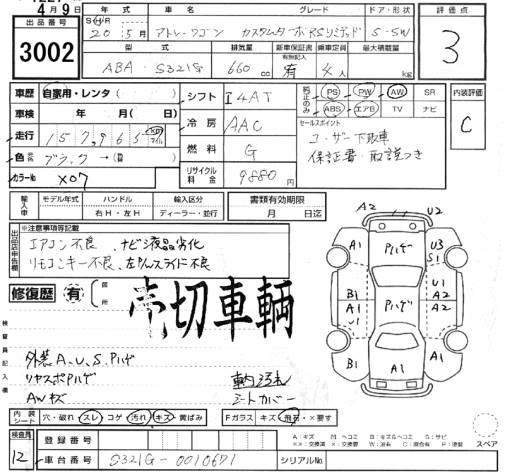 4月9日
出品番号 3002
年式 車名 グレード ドア・形状
S・H/R 20年5月 アトレーワゴン カスタムターボRSリミテッド 5-SW
型式 排気量 新車保証書 乗車定員 最大積載量
有無記入
ABA-S321G 660cc 有 4人 kg
評価点 3
車歴 自家用・レンタ( )
車検 年 月( 日)
走行 157,965 km マイル
色 ブラック→( )
カラーNo X07
シフト I4AT
冷房 AAC
燃料 G
リサイクル料金 9880円
純正のみ PS PW AW SR
ABS エアB TV ナビ
セールスポイント
ユーザー下取車
保証書・取説つき
内装評価 C
輸入車 モデル年式 ハンドル 輸入区分
年 右H・左H ディーラー・並行
書類有効期限
月 日迄
出品店申告欄 ※注意事項等記載
エアコン不良、ナビ液晶劣化
リモコンキー不良、左りんスライド不良
修復歴 有 箇所
売切車輌
検査員記入欄
外装A.U.S.ハゲ
リヤスポハゲ
AWキズ
シートカバー
A2 U2
A1 ハゲ U3
S1
B1 ハゲ U1
A1 A2
U1 A2
B1 A1 A1
内装シート 穴・破れ スレ コゲ 汚れ キズ 黄ばみ
Fガラス キズ・飛石・×要す
スペア
A:キズ M:ヘコミ B:キズ&ヘコミ S:サビ
検査員 12
登録番号
車台番号 S321G-0010671
シリアルNo.